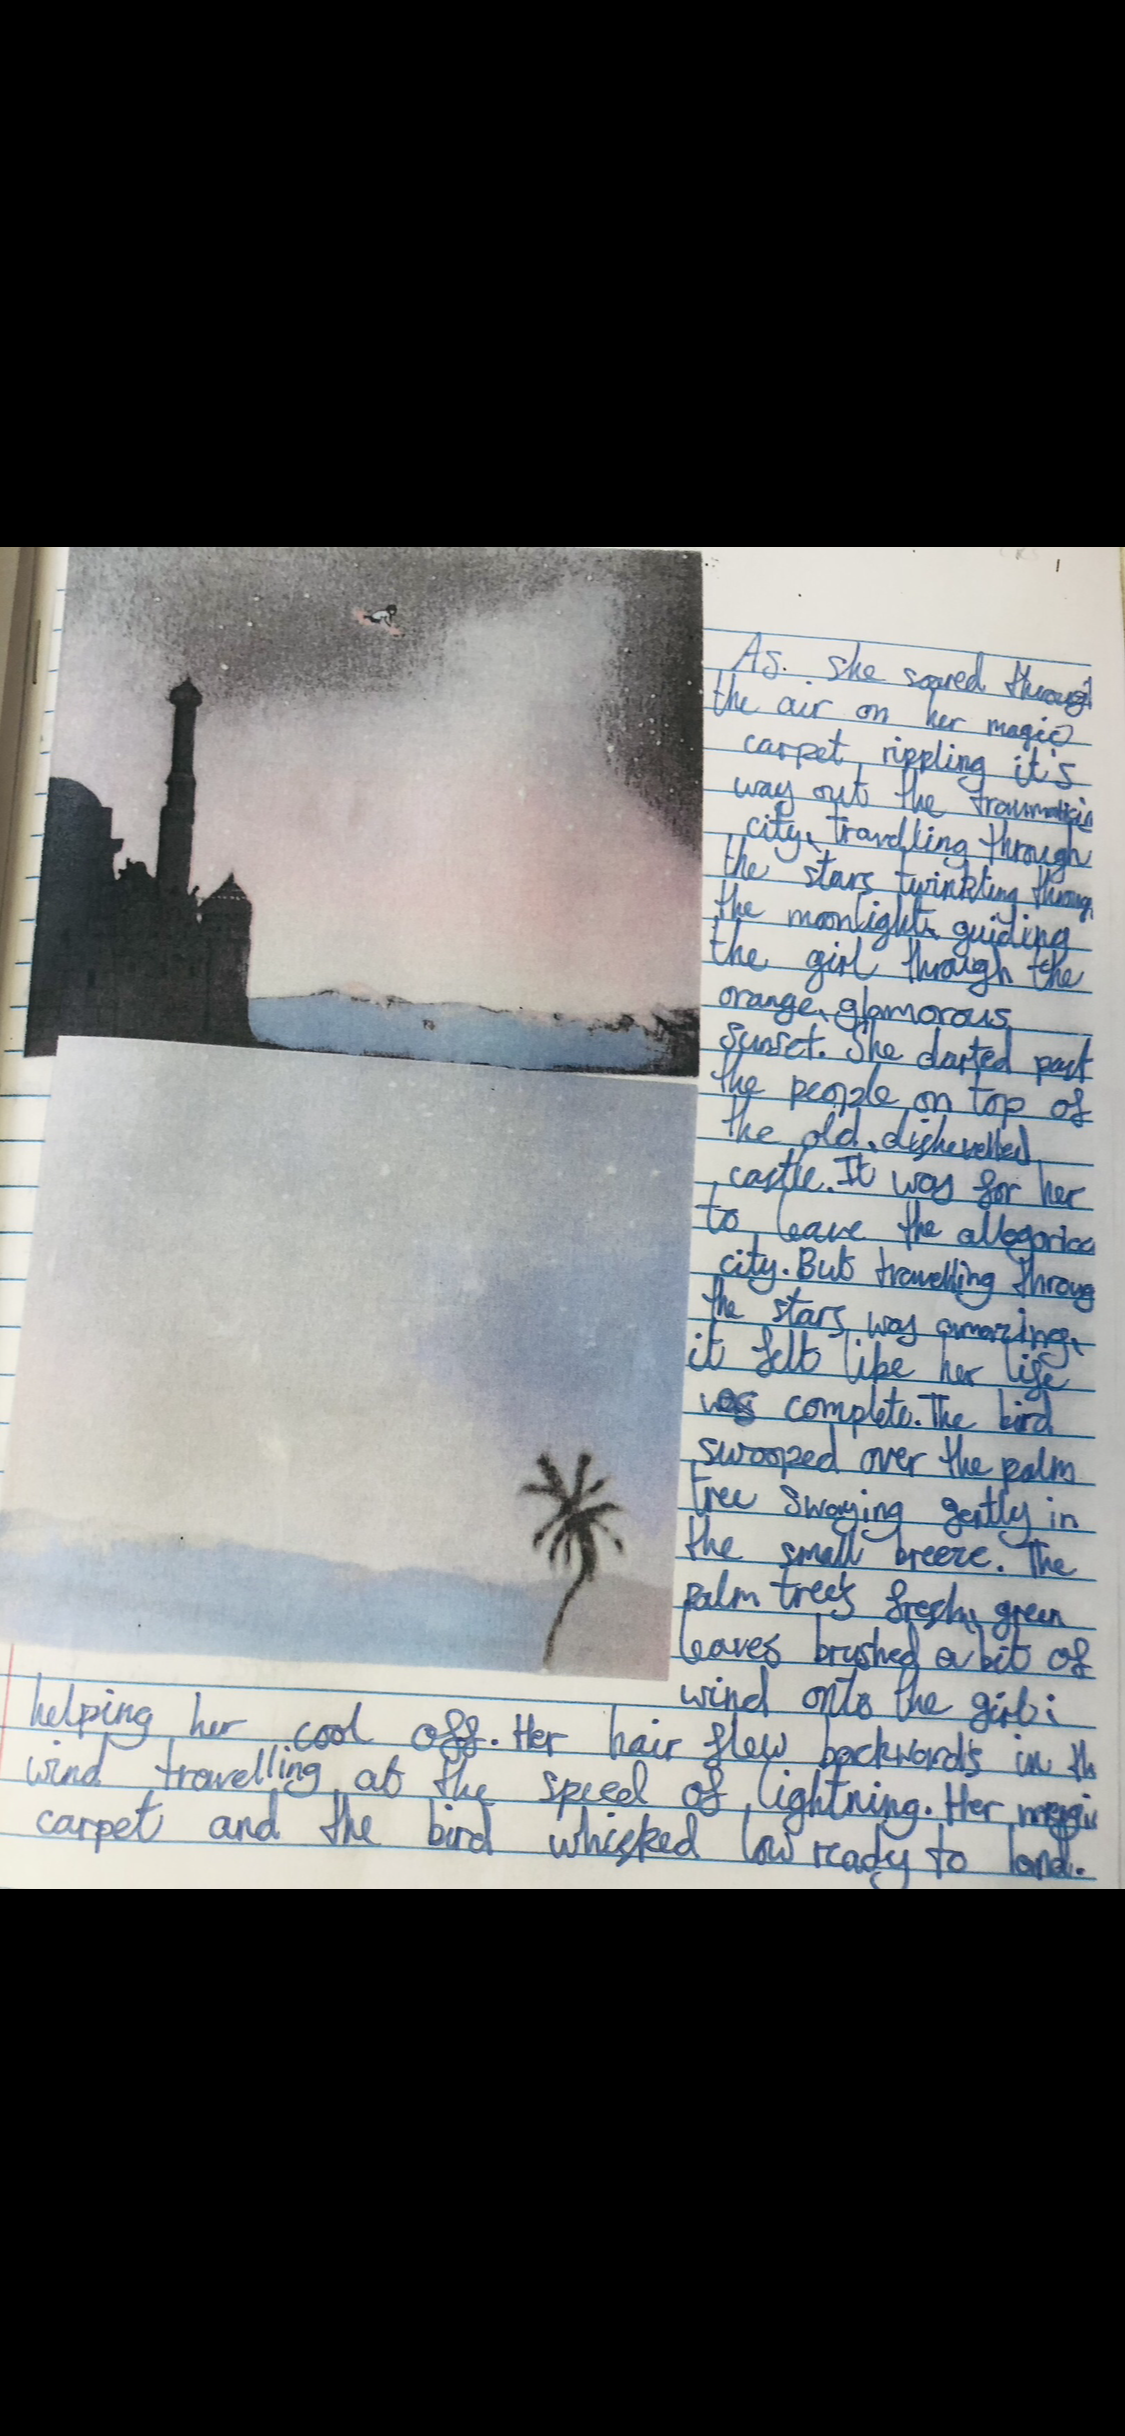 As. she soared through
the air on her magic
carpet, rippling it's
way out the traumatic
city, travelling through
the stars twinkling throug
the moonlight, guiding
the girl through the
orange, glamorous
sunset. She darted past
the people on top of
the old, dishevelled
castle. It was for her
to leave the allegorica
city. But travelling throug
the stars was amazing,
it felt like her life
was complete. The bird
swooped over the palm
tree swaying gently in
the small breeze. The
palm tree's fresh, green
leaves brushed a bit of
wind onto the girl;
helping her cool off. Her hair flew backwards in th
wind travelling at the speed of lightning. Her
carpet and the bird whisked low ready to land.